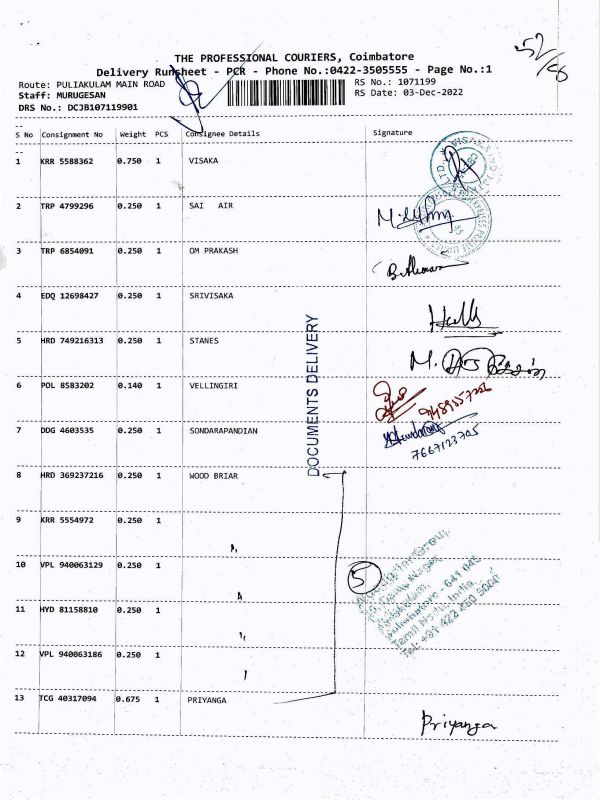 52/68
THE PROFESSIONAL COURIERS, Coimbatore
Delivery Runsheet - PCR - Phone No.:0422-3505555 - Page No.:1
Route: PULIAKULAM MAIN ROAD RS No.: 1071199
Staff: MURUGESAN RS Date: 03-Dec-2022
DRS No.: DCJB107119901
S No Consignment No Weight PCS Consignee Details Signature
1 KRR 5588362 0.750 1 VISAKA
2 TRP 4799296 0.250 1 SAI AIR
3 TRP 6854091 0.250 1 OM PRAKASH
4 EDQ 12698427 0.250 1 SRIVISAKA
5 HRD 749216313 0.250 1 STANES
DOCUMENTS DELIVERY
6 POL 8583202 0.140 1 VELLINGIRI
7 DDG 4603535 0.250 1 SONDARAPANDIAN
7667123705
8 HRD 369237216 0.250 1 WOOD BRIAR
9 KRR 5554972 0.250 1
10 VPL 940063129 0.250 1
5
Coimbatore - 641 045
Tamil Nadu, India.
11 HYD 81158810 0.250 1
12 VPL 940063186 0.250 1
13 TCG 40317094 0.675 1 PRIYANGA
Priyanga